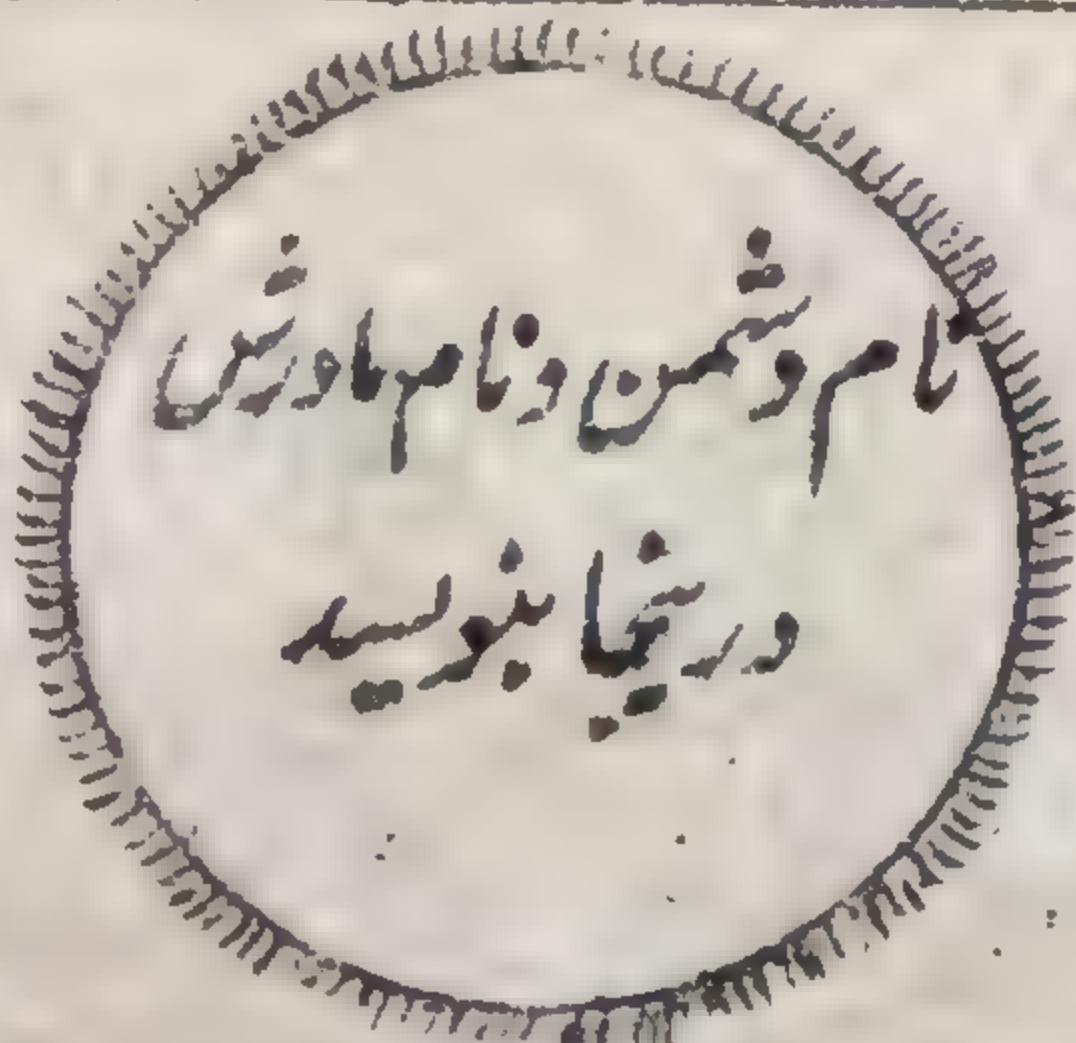 نام دشمن و نام مادرش
درینجا بنویسید